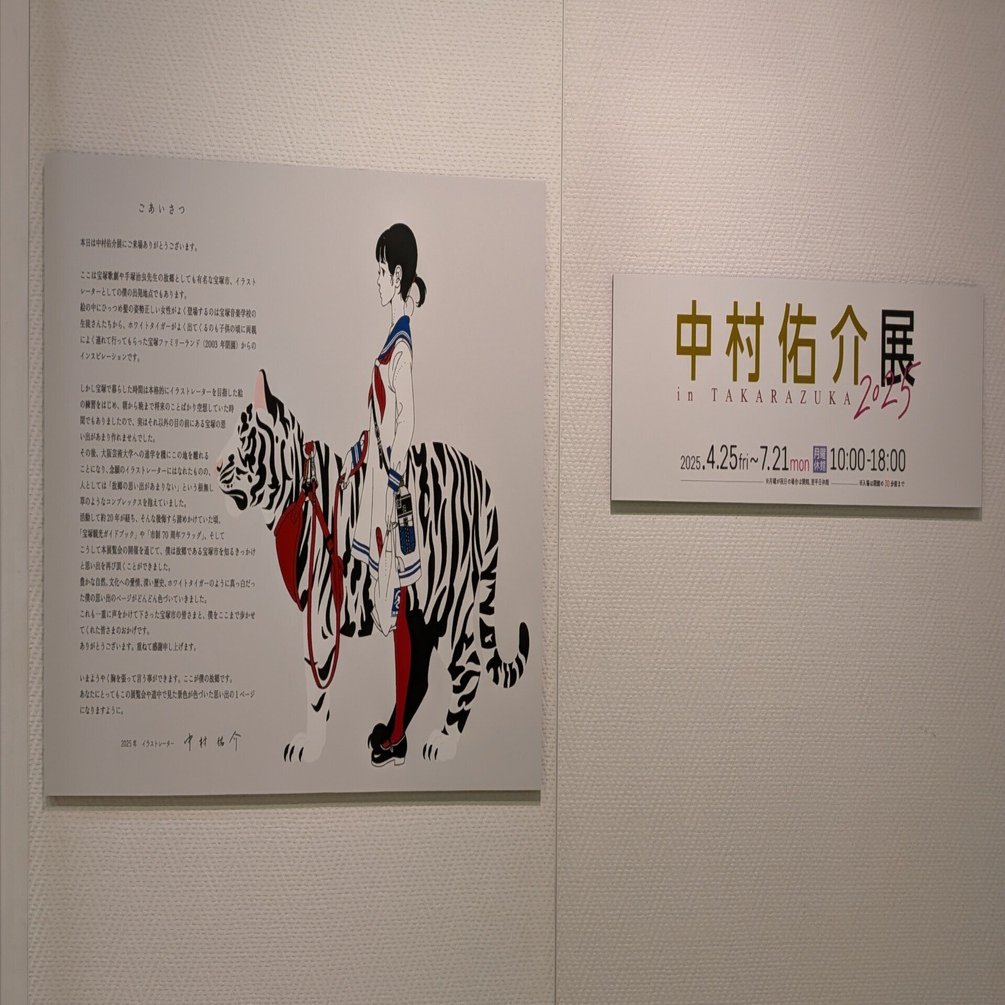 ごあいさつ
本日は中村佑介展にご来場ありがとうございます。
ここは宝塚歌劇や手塚治虫先生の故郷としても有名な宝塚市、イラスト
レーターとしての僕の出発地点でもあります。
絵の中にひっつめ髪の姿勢正しい女性がよく登場するのは宝塚音楽学校の
生徒さんたちから、ホワイトタイガーがよく出てくるのも子供の頃に両親
によく連れて行ってもらった宝塚ファミリーランド（2003 年閉園）からの
インスピレーションです。
しかし宝塚で暮らした時間は本格的にイラストレーターを目指した絵
の練習をはじめ、朝から晩まで将来のことばかり空想していた時
間でもありましたので、実はそれ以外の目の前にある宝塚の思
い出があまり作れませんでした。
その後、大阪芸術大学への進学を機にこの地を離れる
ことになり、念願のイラストレーターにはなれたものの、
人としては「故郷の思い出があまりない」という根無し
草のようなコンプレックスを抱えていました。
活動して約20年が経ち、そんな後悔すら諦めかけていた頃、
「宝塚観光ガイドブック」や「市制 70 周年フラッグ」、そして
こうして本展覧会の開催を通じて、僕は故郷である宝塚市を知るきっかけ
と思い出を再び頂くことができました。
豊かな自然、文化への愛情、深い歴史、ホワイトタイガーのように真っ白だっ
た僕の思い出のページがどんどん色づいていきました。
これも一重に声をかけて下さった宝塚市の皆さまと、僕をここまで歩かせ
てくれた皆さまのおかげです。
ありがとうございます。重ねて感謝申し上げます。
いまようやく胸を張って言う事ができます。ここが僕の故郷です。
あなたにとってもこの展覧会や道中で見た景色が色づいた思い出の1ページ
になりますように。
2025年 イラストレーター 中村佑介
中村佑介展
in TAKARAZUKA 2025
2025.4.25fri~7.21mon 月曜休館 10:00-18:00
※月曜が祝日の場合は開館、翌平日休館 ※入場は閉館の30分前まで